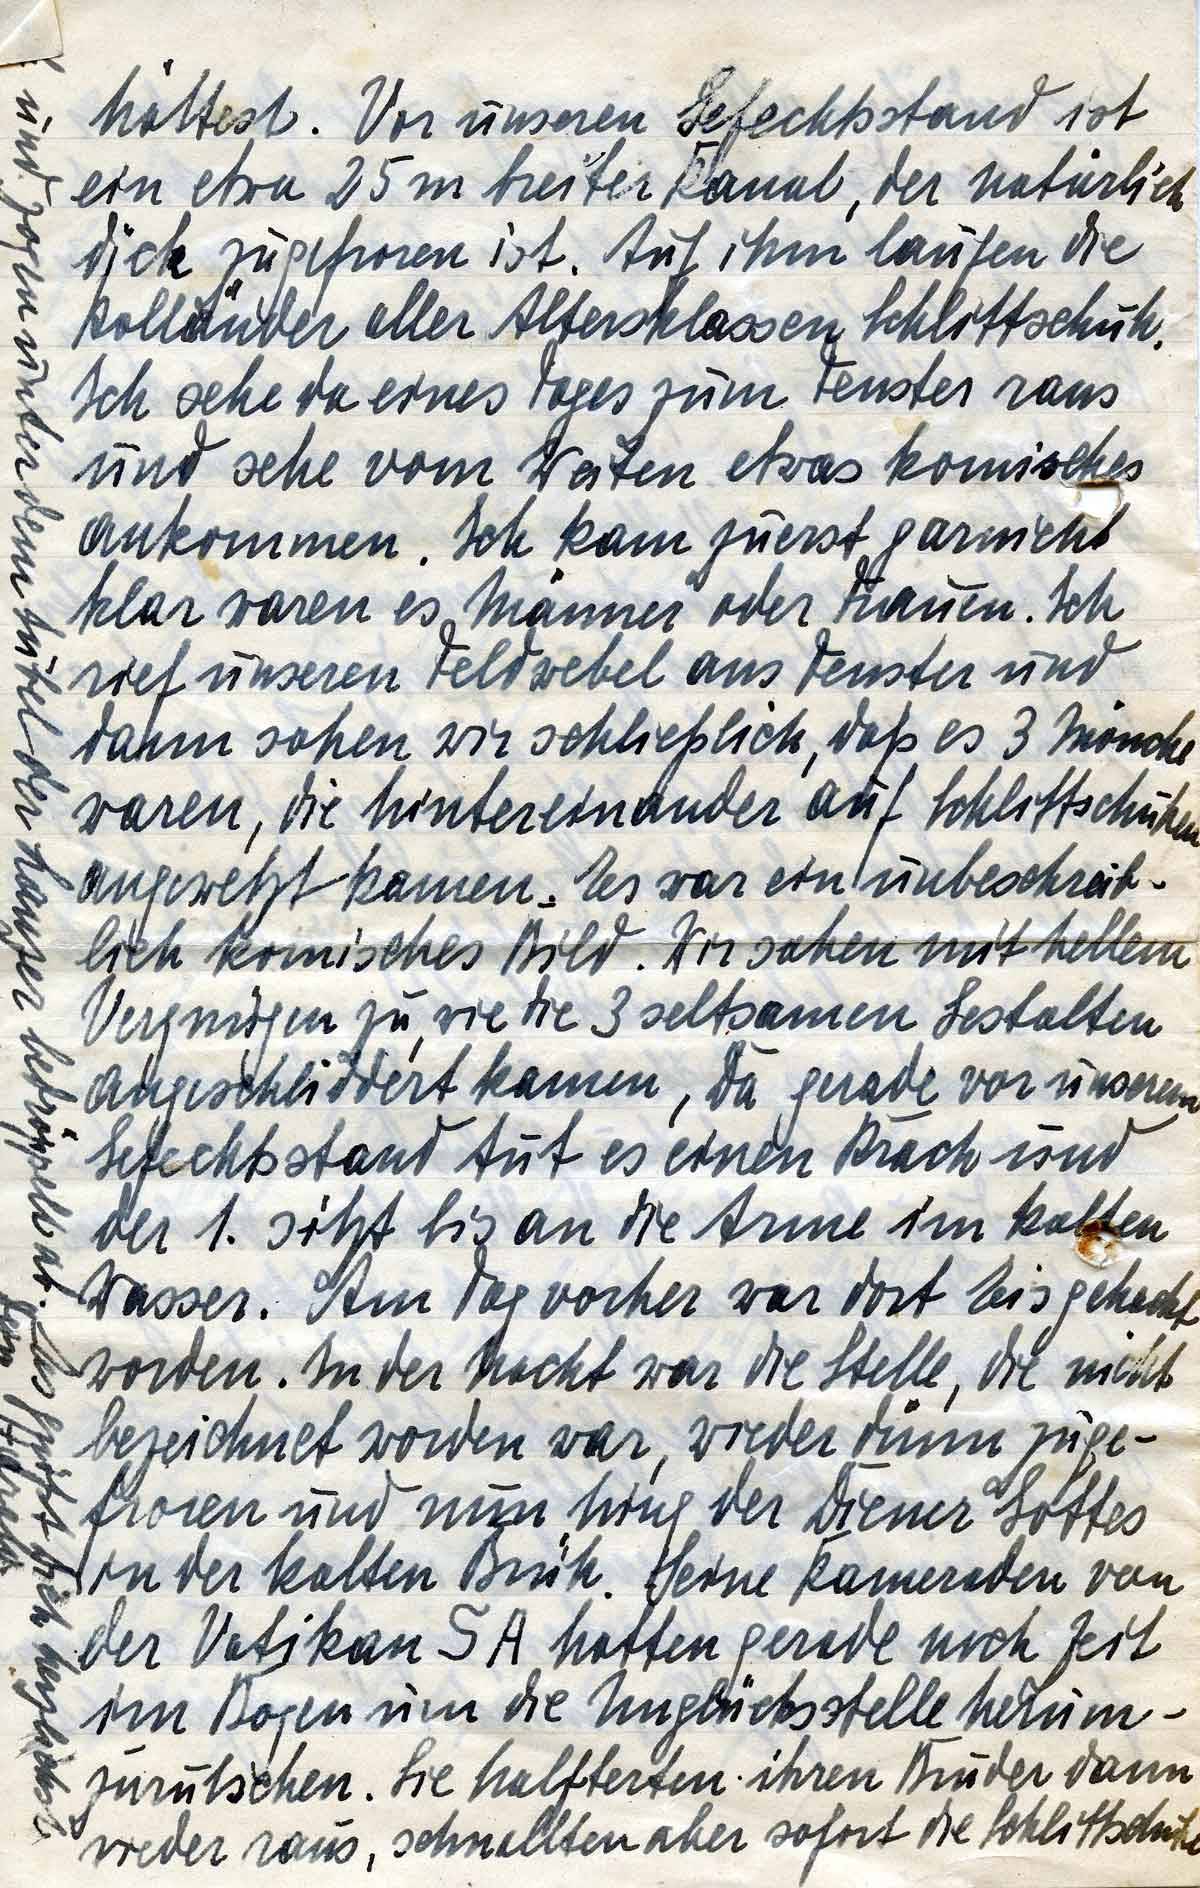 hättest. Vor unseren Gefechtsstand ist
ein etwa 25 m breiter Kanal, der natürlich
dick zugefroren ist. Auf ihm laufen die
Holländer aller Altersklassen Schlittschuh.
Ich sehe da eines Tages zum Fenster raus
und sehe vom Weiten etwas komisches
ankommen. Ich kam zuerst garnicht
klar waren es Männer oder Frauen. Ich
rief unseren Feldwebel ans Fenster und
dann sahen wir schließlich, daß es 3 Mönche
waren, die hintereinander auf Schlittschuhen
angewetzt kamen. Es war ein unbeschreib-
lich komisches Bild. Wir sahen mit hellem
Vergnügen zu, wie die 3 seltsamen Gestalten
angeschliddert kamen, Da gerade vor unserem
Gefechtsstand tut es einen Krach und
der 1. sitzt bis an die Arme im kalten
Wasser. Am Tag vorher war dort Eis gehackt
worden. In der Nacht war die Stelle, die nicht
bezeichnet worden war, wieder dünn zuge-
froren und nun hing der Diener Gottes
in der kalten Brüh. Seine Kameraden von
der Vatikan SA hatten gerade noch Zeit
im Bogen um die Unglücksstelle herum-
zurutschen. Sie halfterten ihren Bruder dann
wieder raus, schnallten aber sofort die Schlittschuhe
und zogen unter dem Jubel der Landser bedröppelt ab. Es grüßt Dich herzlichst
Dein